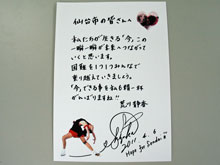 仙台市の皆さんへ
私たちが生きる"今、この
一瞬一瞬が未来へつながって
いくと思います。
困難を1つ1つみんなで
乗り越えていきましょう。
"今、できる事を私も精一杯
がんばりますね!!
荒川静香
2011. 4. 6
Hope for Sendai!!